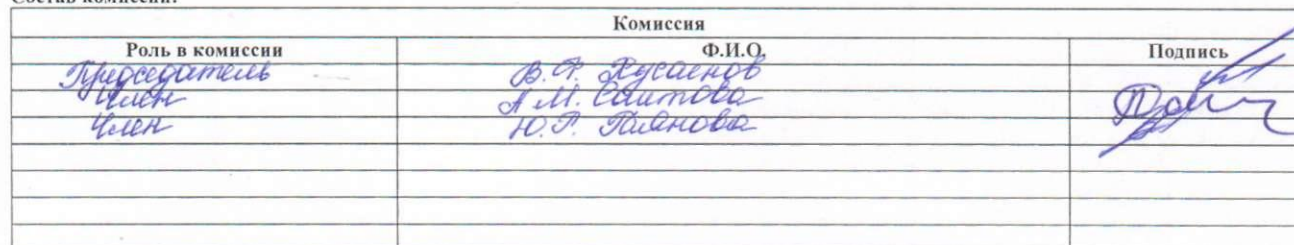 Состав комиссии:
Комиссия
Роль в комиссии Ф.И.О. Подпись
Председатель В.А. Хусаенов
Член А.М. Саитова
Член Ю.Р. Галянова